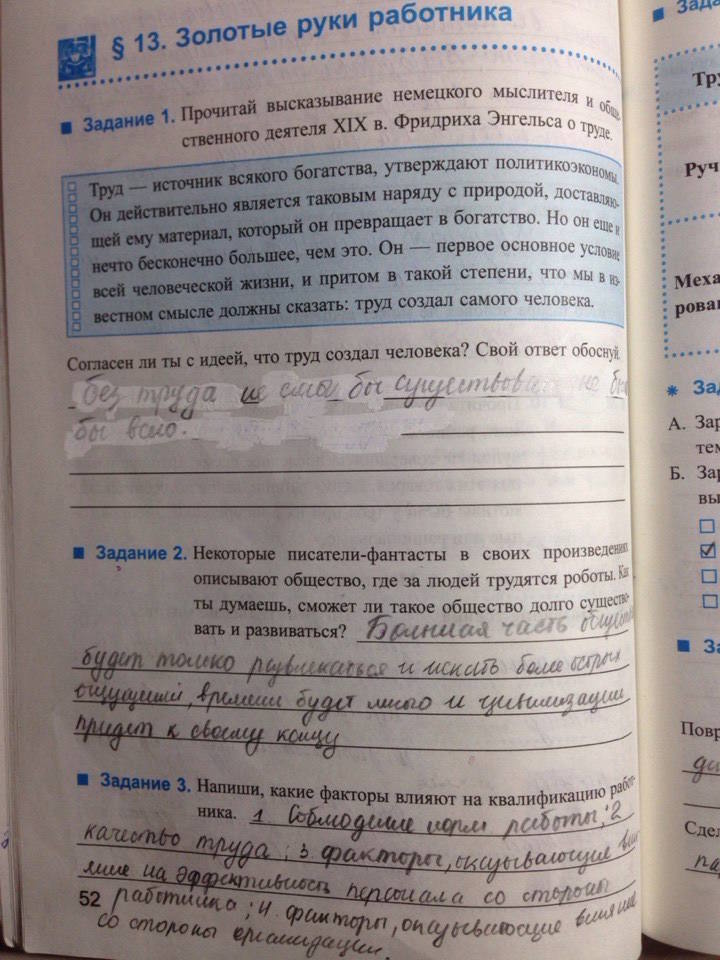 § 13. Золотые руки работника
Задание 1. Прочитай высказывание немецкого мыслителя и обще-
ственного деятеля XIX в. Фридриха Энгельса о труде.
Труд — источник всякого богатства, утверждают политикоэкономы.
Он действительно является таковым наряду с природой, доставляю-
щей ему материал, который он превращает в богатство. Но он еще и
нечто бесконечно большее, чем это. Он — первое основное условие
всей человеческой жизни, и притом в такой степени, что мы в из-
вестном смысле должны сказать: труд создал самого человека.
Согласен ли ты с идеей, что труд создал человека? Свой ответ обоснуй.
без труда не смог бы существовать не бы
бы всло.
Задание 2. Некоторые писатели-фантасты в своих произведениях
описывают общество, где за людей трудятся роботы. Как
ты думаешь, сможет ли такое общество долго существо-
вать и развиваться? Большая часть общества
будет только развлекаться и искать более острых
ощущений, времени будет много и цивилизации
придет к своему концу
Задание 3. Напиши, какие факторы влияют на квалификацию работ-
ника. 1. Соблюдение норм работы; 2
качество труда; 3. факторы, оказывающие вли
яние на эффективность персонала со стороны
52 работника; 4. факторы, оказывающие влияние
со стороны организации.
Зада
Тру
Руч
Меха
рован
Зад
А. Зар
тем
Б. Зар
вы
За
Повр
Сдел